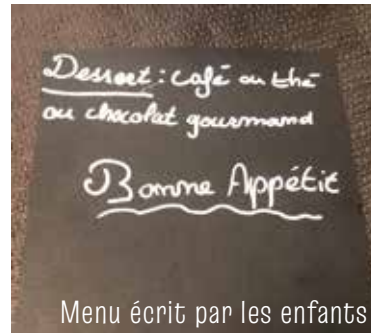 Dessert : café ou thé
ou chocolat gourmand
Bonne Appétit
Menu écrit par les enfants